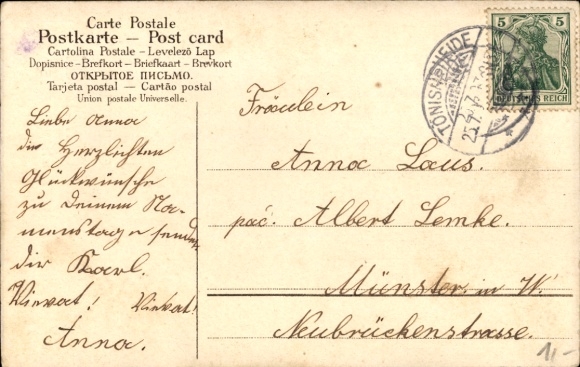 Carte Postale
Postkarte — Post card
Cartolina Postale - Levelező Lap
Dopisnice - Brefkort - Briefkaart - Brevkort
ОТКРЫТОЕ ПИСЬМО.
Tarjeta postal — Cartão postal
Union postale Universelle.
Liebe Anna
die Herzlichten
Glückwünsche
zu Deinem Na-
menstage sendet
dir Karl.
Vievat! Vievat!
Anna.
TÖNISHEIDE
25.7.
5 5
DEUTSCHES REICH
Fräulein
Anna Laus.
pac. Albert Lemke.
Münster in W.
Neubrückenstrasse.
11,-